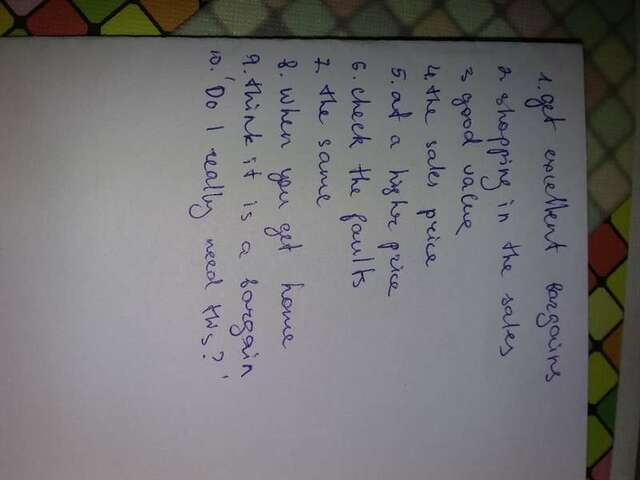 1. get excellent bargains
2. shopping in the sales
3 good value
4. the sales price
5. at a higher price
6. check the faults
7. the same
8. when you get home
9. think it is a bargain
10. 'Do I really need this?'